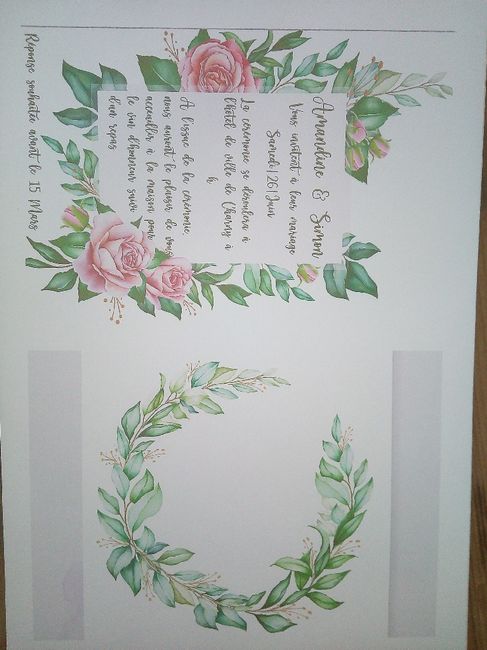 Amandine & Simon
Vous invitent à leur mariage
Samedi | 26 | Juin
La cérémonie se déroulera à
l'hôtel de ville de Charny à
h.
A l'issue de la cérémonie,
nous auront le plaisir de vous
accueillir à la maison pour
le vin d'honneur suivi
d'un repas
Réponse souhaitée avant le 15 Mars